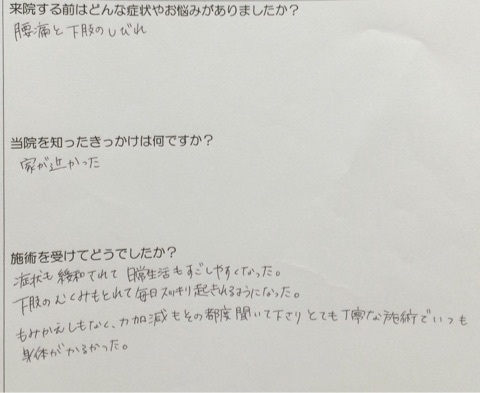 来院する前はどんな症状やお悩みがありましたか？
腰痛と下肢のしびれ
当院を知ったきっかけは何ですか？
家が近かった
施術を受けてどうでしたか？
症状も緩和されて日常生活もすごしやすくなった。
下肢のむくみもとれて毎日スッキリ起きれるようになった。
もみかえしもなく、力加減もその都度聞いて下さりとても丁寧な施術でいつも
身体がかるかった。